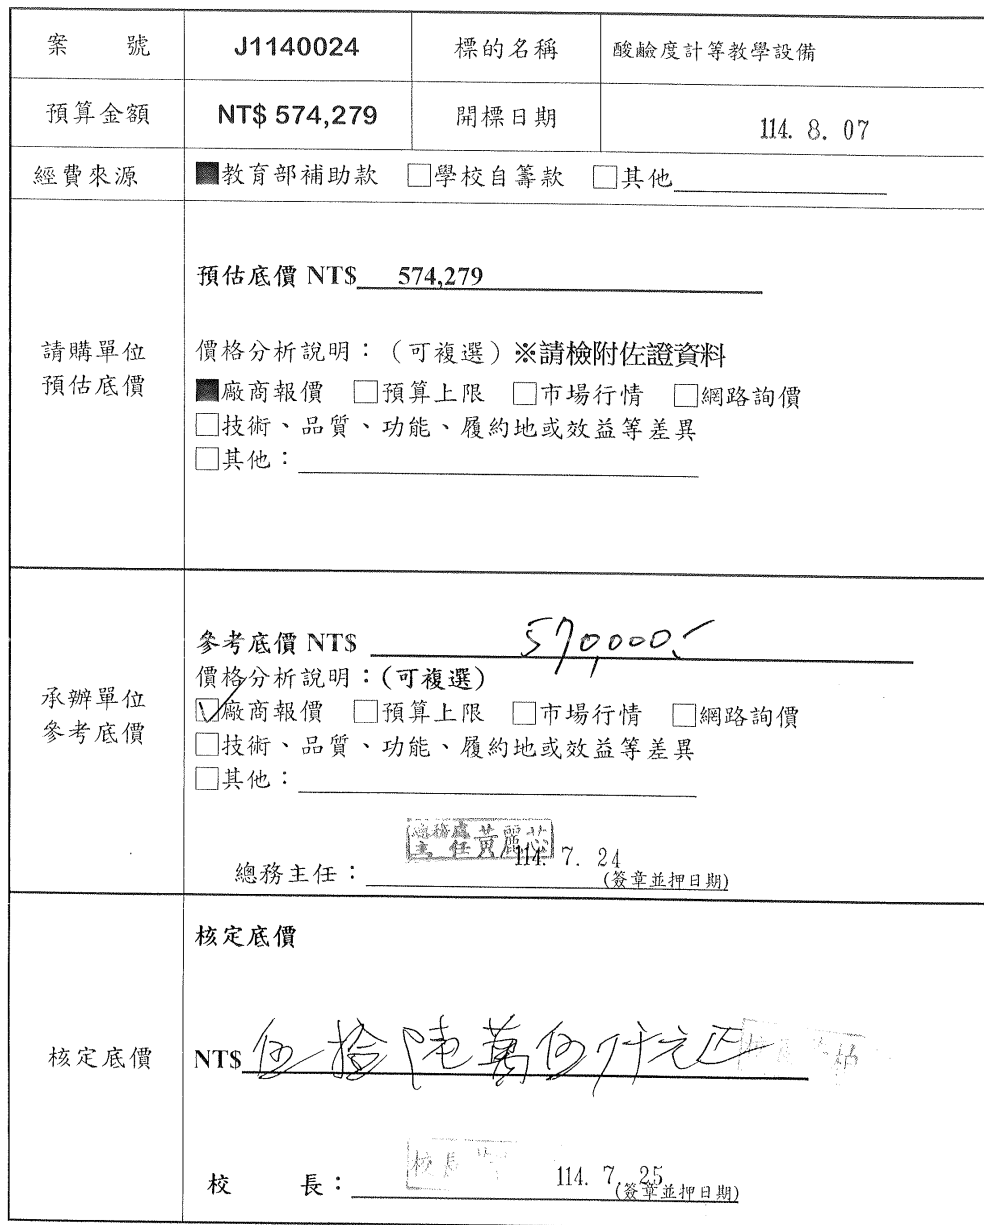 案　　號 J1140024 標的名稱 酸鹼度計等教學設備
預算金額 NT$ 574,279 開標日期 114. 8. 07
經費來源 ■教育部補助款 □學校自籌款 □其他
預估底價 NT$ 574,279
請購單位
預估底價
價格分析說明：（可複選）※請檢附佐證資料
■廠商報價 □預算上限 □市場行情 □網路詢價
□技術、品質、功能、履約地或效益等差異
□其他：
參考底價 NT$ 570,000.-
承辦單位
參考底價
價格分析說明：(可複選)
☑廠商報價 □預算上限 □市場行情 □網路詢價
□技術、品質、功能、履約地或效益等差異
□其他：
總務處
主任 黃麗芯
114. 7. 24
總務主任：
(簽章並押日期)
核定底價
核定底價
NT$ 伍拾陸萬伍仟元正
校長
114. 7. 25
校　　長：
(簽章並押日期)